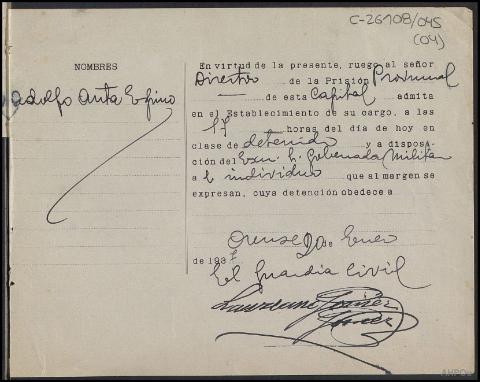 C-26108/045
(04)
NOMBRES
Adolfo Anta Espino
En virtud de la presente, ruego al señor
Director de la Prisión Provincial
de esta Capital admita
en el Establecimiento de su cargo, a las
17 horas del día de hoy en
clase de detenido y a disposi-
ción del Excmo. Sr. Gobernador Militar
a el individuo que al margen se
expresan, cuya detención obedece a
Orense 20 de Enero
de 1937
El Guardia Civil
AHPOu